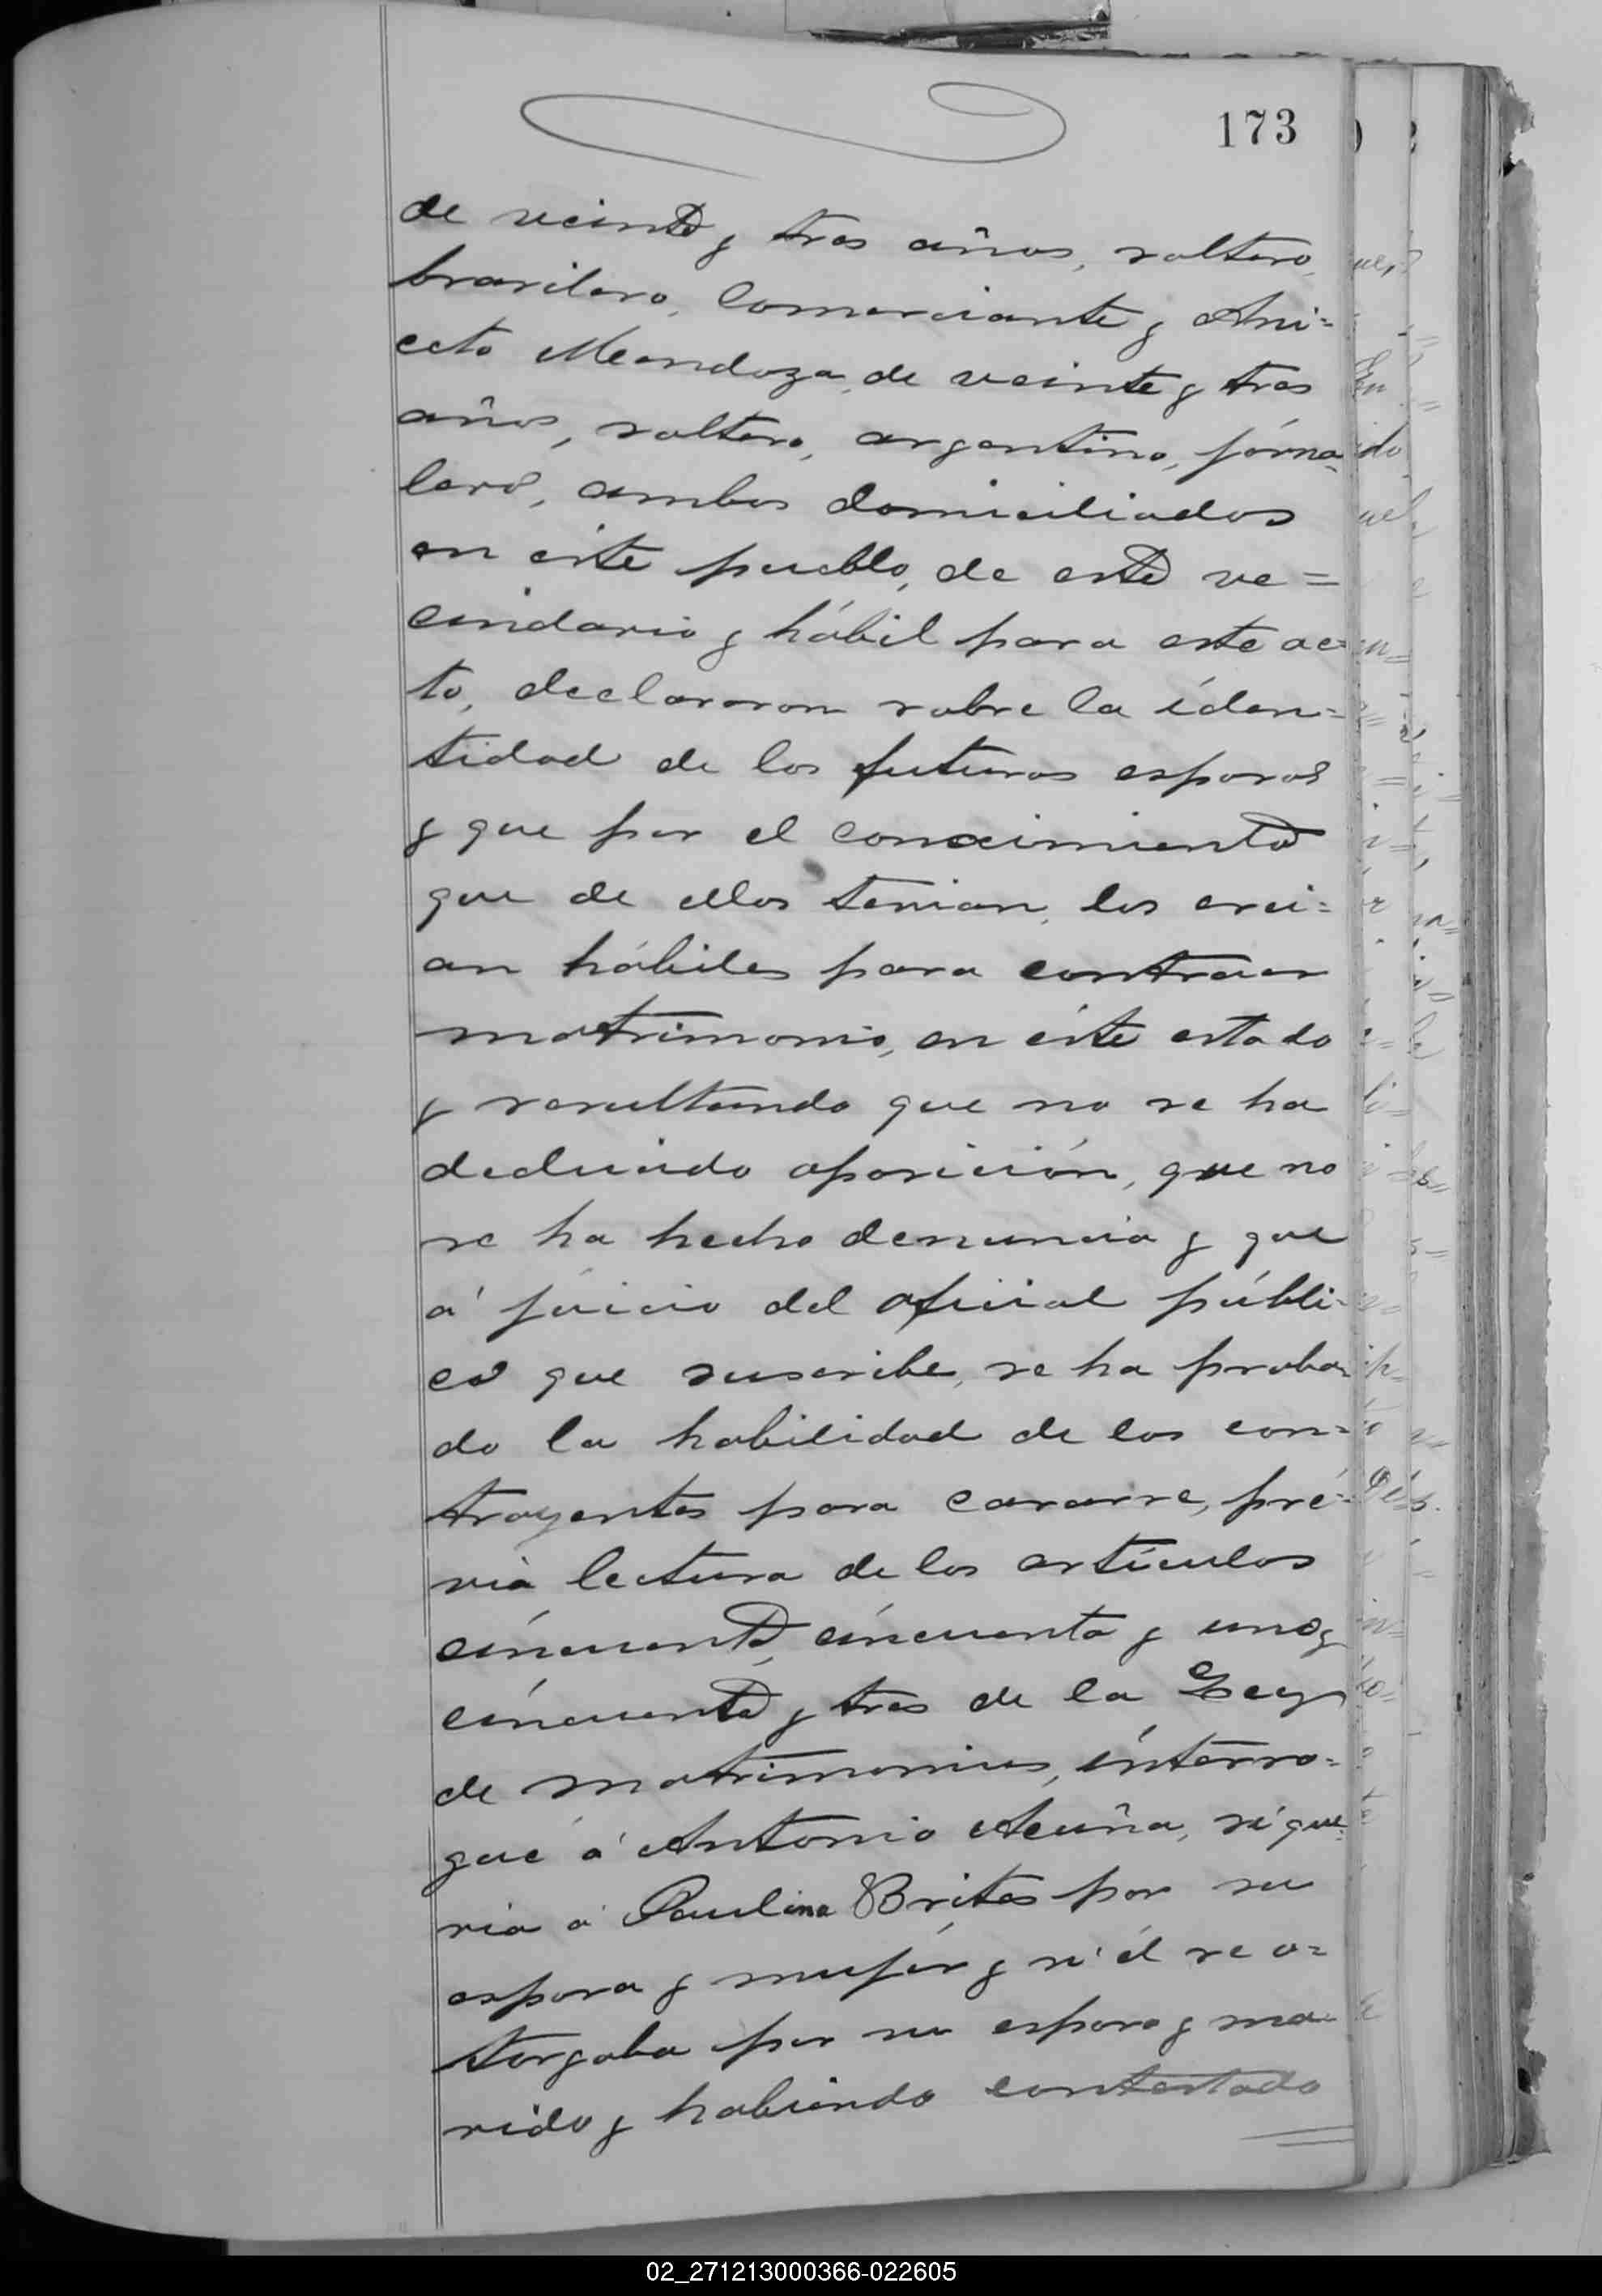 173
de veinte y tres años, soltero,
brasilero, Comerciante y Ani=
ceto Mendoza, de veinte y tres
años, soltero, argentino, jórna=
lero, ambos domiciliados
en éste pueblo, de este ve=
cindario y hábil para este ac=
to, declararon sobre la íden=
tidad de los futuros esposos
y que por el conocimiento
que de ellos tenian, los crei=
an hábiles para contraer
matrimonio, en éste estado
y resultando que no se ha
deducido oposición, que no
se ha hecho denuncia y que
á juicio del oficial públi=
co que suscribe, se ha proba=
do la habilidad de los con=
trayentes para casarse, pré=
via lectura de los artículos
cíncuenta, cíncuenta y uno y
cíncuenta y tres de la Ley
de matrimonios, ínterro=
gué á Antonio Acuña, sí que=
ria á Paulina Brites por su
esposa y mujér y si él se o=
torgaba por su esposo y ma=
rido y habiendo contestado
02_271213000366-022605